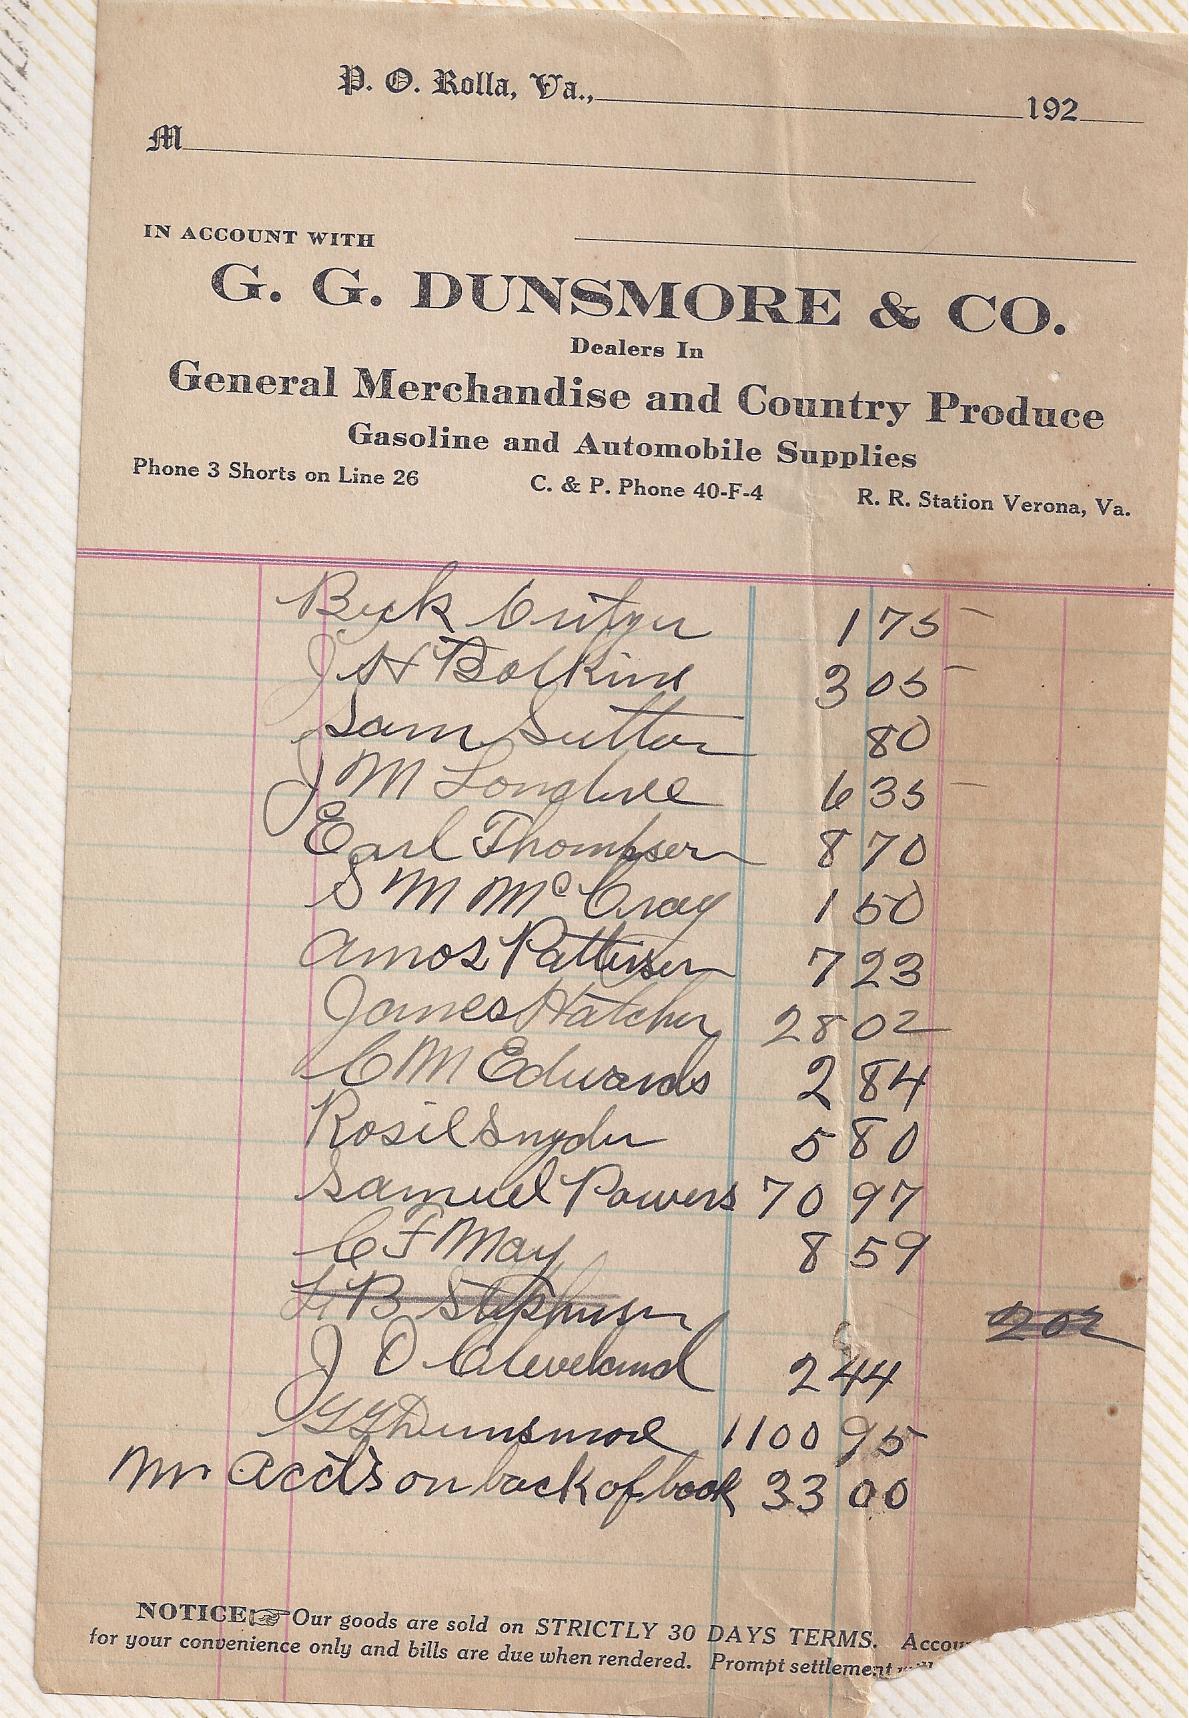 P. O. Rolla, Va., 192
M
IN ACCOUNT WITH
G. G. DUNSMORE & CO.
Dealers In
General Merchandise and Country Produce
Gasoline and Automobile Supplies
Phone 3 Shorts on Line 26 C. & P. Phone 40-F-4 R. R. Station Verona, Va.
1 75
J H 3 05
Sam Sutton 80
J M 6 35
Earl Thompson 8 70
S M McCray 1 50
Amos Patterson 7 23
James Hatcher 28 02
C M Edwards 2 84
Snyder 5 80
Samuel Powers 70 97
C F May 8 59
B Stephenson 202
J O Cleveland 2 44
G G Dunsmore 1100 95
Acct's on back of book 33 00
NOTICE Our goods are sold on STRICTLY 30 DAYS TERMS. Accou
for your convenience only and bills are due when rendered. Prompt settlement